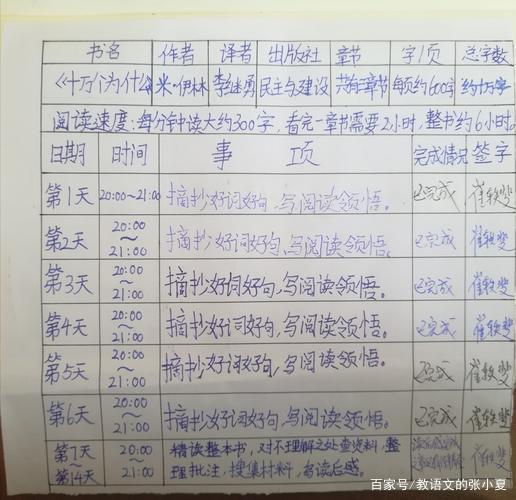 书名 作者 译者 出版社 章节 字/页 总字数
《十万个为什么》 米·伊林 李继勇 民主与建设 共有三章节 每页约600字 约十万字
阅读速度:每分钟读大约300字,看完一章节需要2小时,整书约6小时。
日期 时间 事项 完成情况 签字
第1天 20:00~21:00 摘抄好词好句,写阅读领悟。 已完成
第2天 20:00~21:00 摘抄好词好句,写阅读领悟。 已完成
第3天 20:00~21:00 摘抄好词好句,写阅读领悟。 已完成
第4天 20:00~21:00 摘抄好词好句,写阅读领悟。 已完成
第5天 20:00~21:00 摘抄好词好句,写阅读领悟。 已完成
第6天 20:00~21:00 摘抄好词好句,写阅读领悟。 已完成
第7天~第14天 20:00~21:00 精读整本书,对不理解之处查资料,整
理批注,搜集材料,写读后感。
百家号/教语文的张小夏